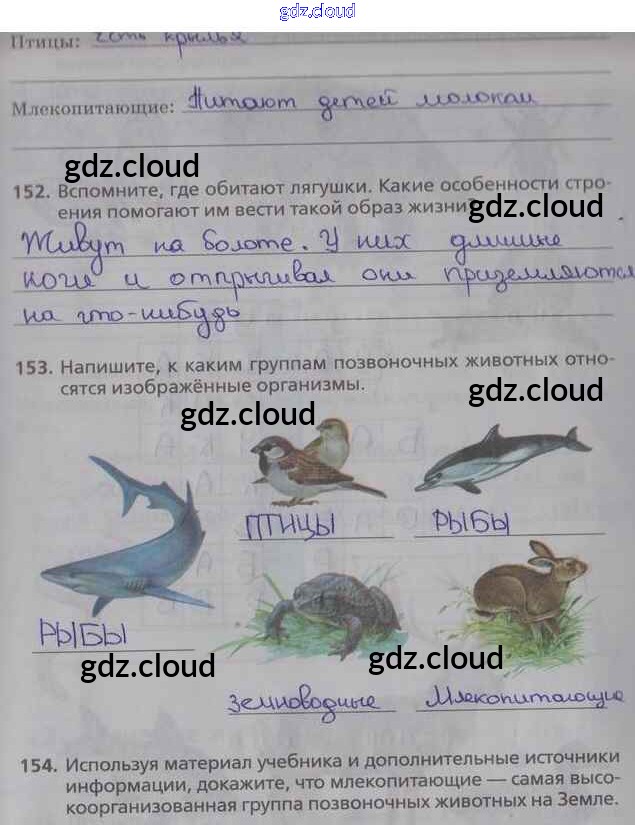 gdz.cloud
Птицы: Есть крылья
Млекопитающие: Питают детей молоком
gdz.cloud
152. Вспомните, где обитают лягушки. Какие особенности стро-
ения помогают им вести такой образ жизни?
gdz.cloud
Живут на болоте. У них длинные
ноги и отпрыгивая они приземляются
на что-нибудь
153. Напишите, к каким группам позвоночных животных отно-
сятся изображённые организмы.
gdz.cloud
gdz.cloud
ПТИЦЫ РЫБЫ
РЫБЫ
gdz.cloud
gdz.cloud
земноводные Млекопитающие
154. Используя материал учебника и дополнительные источники
информации, докажите, что млекопитающие — самая высо-
коорганизованная группа позвоночных животных на Земле.